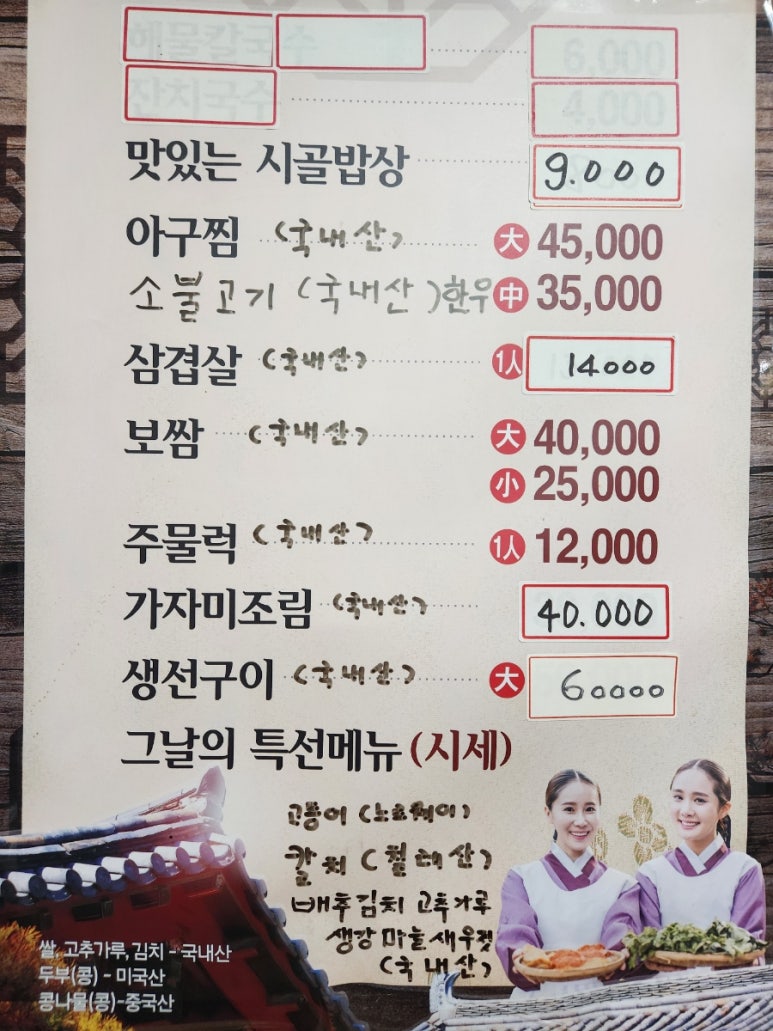 해물칼국수 6,000
잔치국수 4,000
맛있는 시골밥상 9.000
아구찜 (국내산) 大 45,000
소불고기 (국내산) 한우 中 35,000
삼겹살 (국내산) 1人 14000
보쌈 (국내산) 大 40,000
小 25,000
주물럭 (국내산) 1人 12,000
가자미조림 (국내산) 40.000
생선구이 (국내산) 大 60000
그날의 특선메뉴 (시세)
고등어 (노르웨이)
갈치
배추김치 고추가루
생강 마늘 새우젓
(국내산)
쌀, 고추가루, 김치 - 국내산
두부(콩) - 미국산
콩나물(콩)-중국산